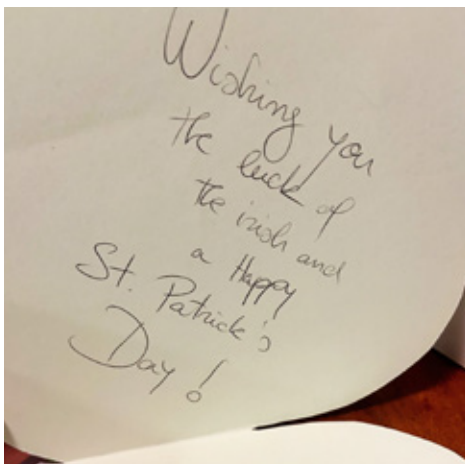 Wishing you
the luck of
the irish and
a Happy
St. Patrick's
Day!